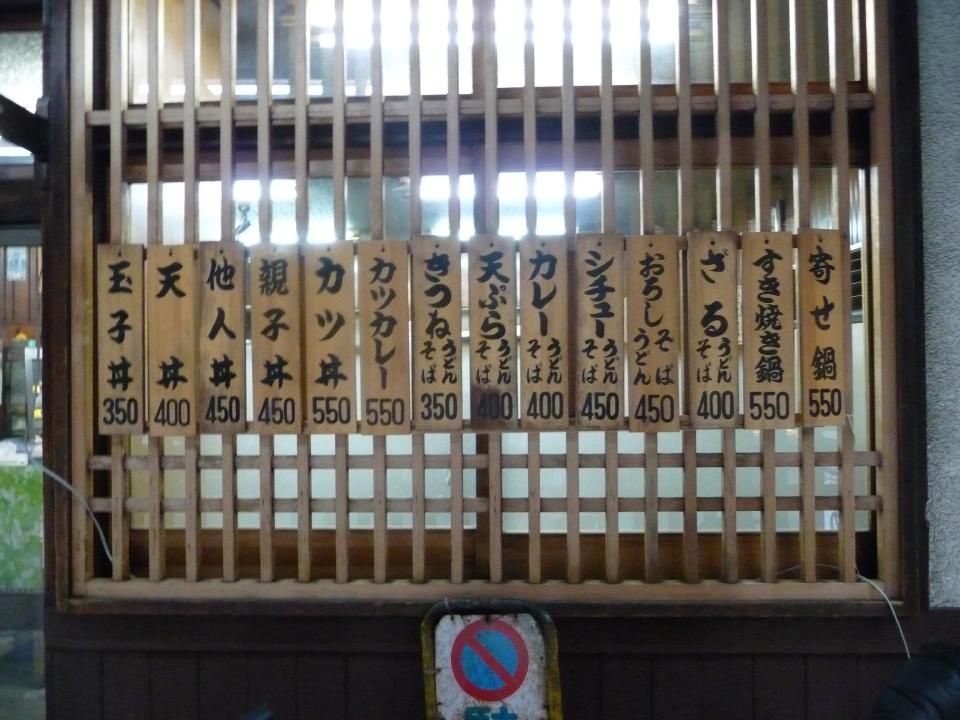 玉子丼 350
天丼 400
他人丼 450
親子丼 450
カツ丼 550
カツカレー 550
きつね うどん そば 350
天ぷら うどん そば 400
カレー うどん そば 400
シチュー うどん そば 450
おろし そば うどん 450
ざる うどん そば 400
すき焼き鍋 550
寄せ鍋 550